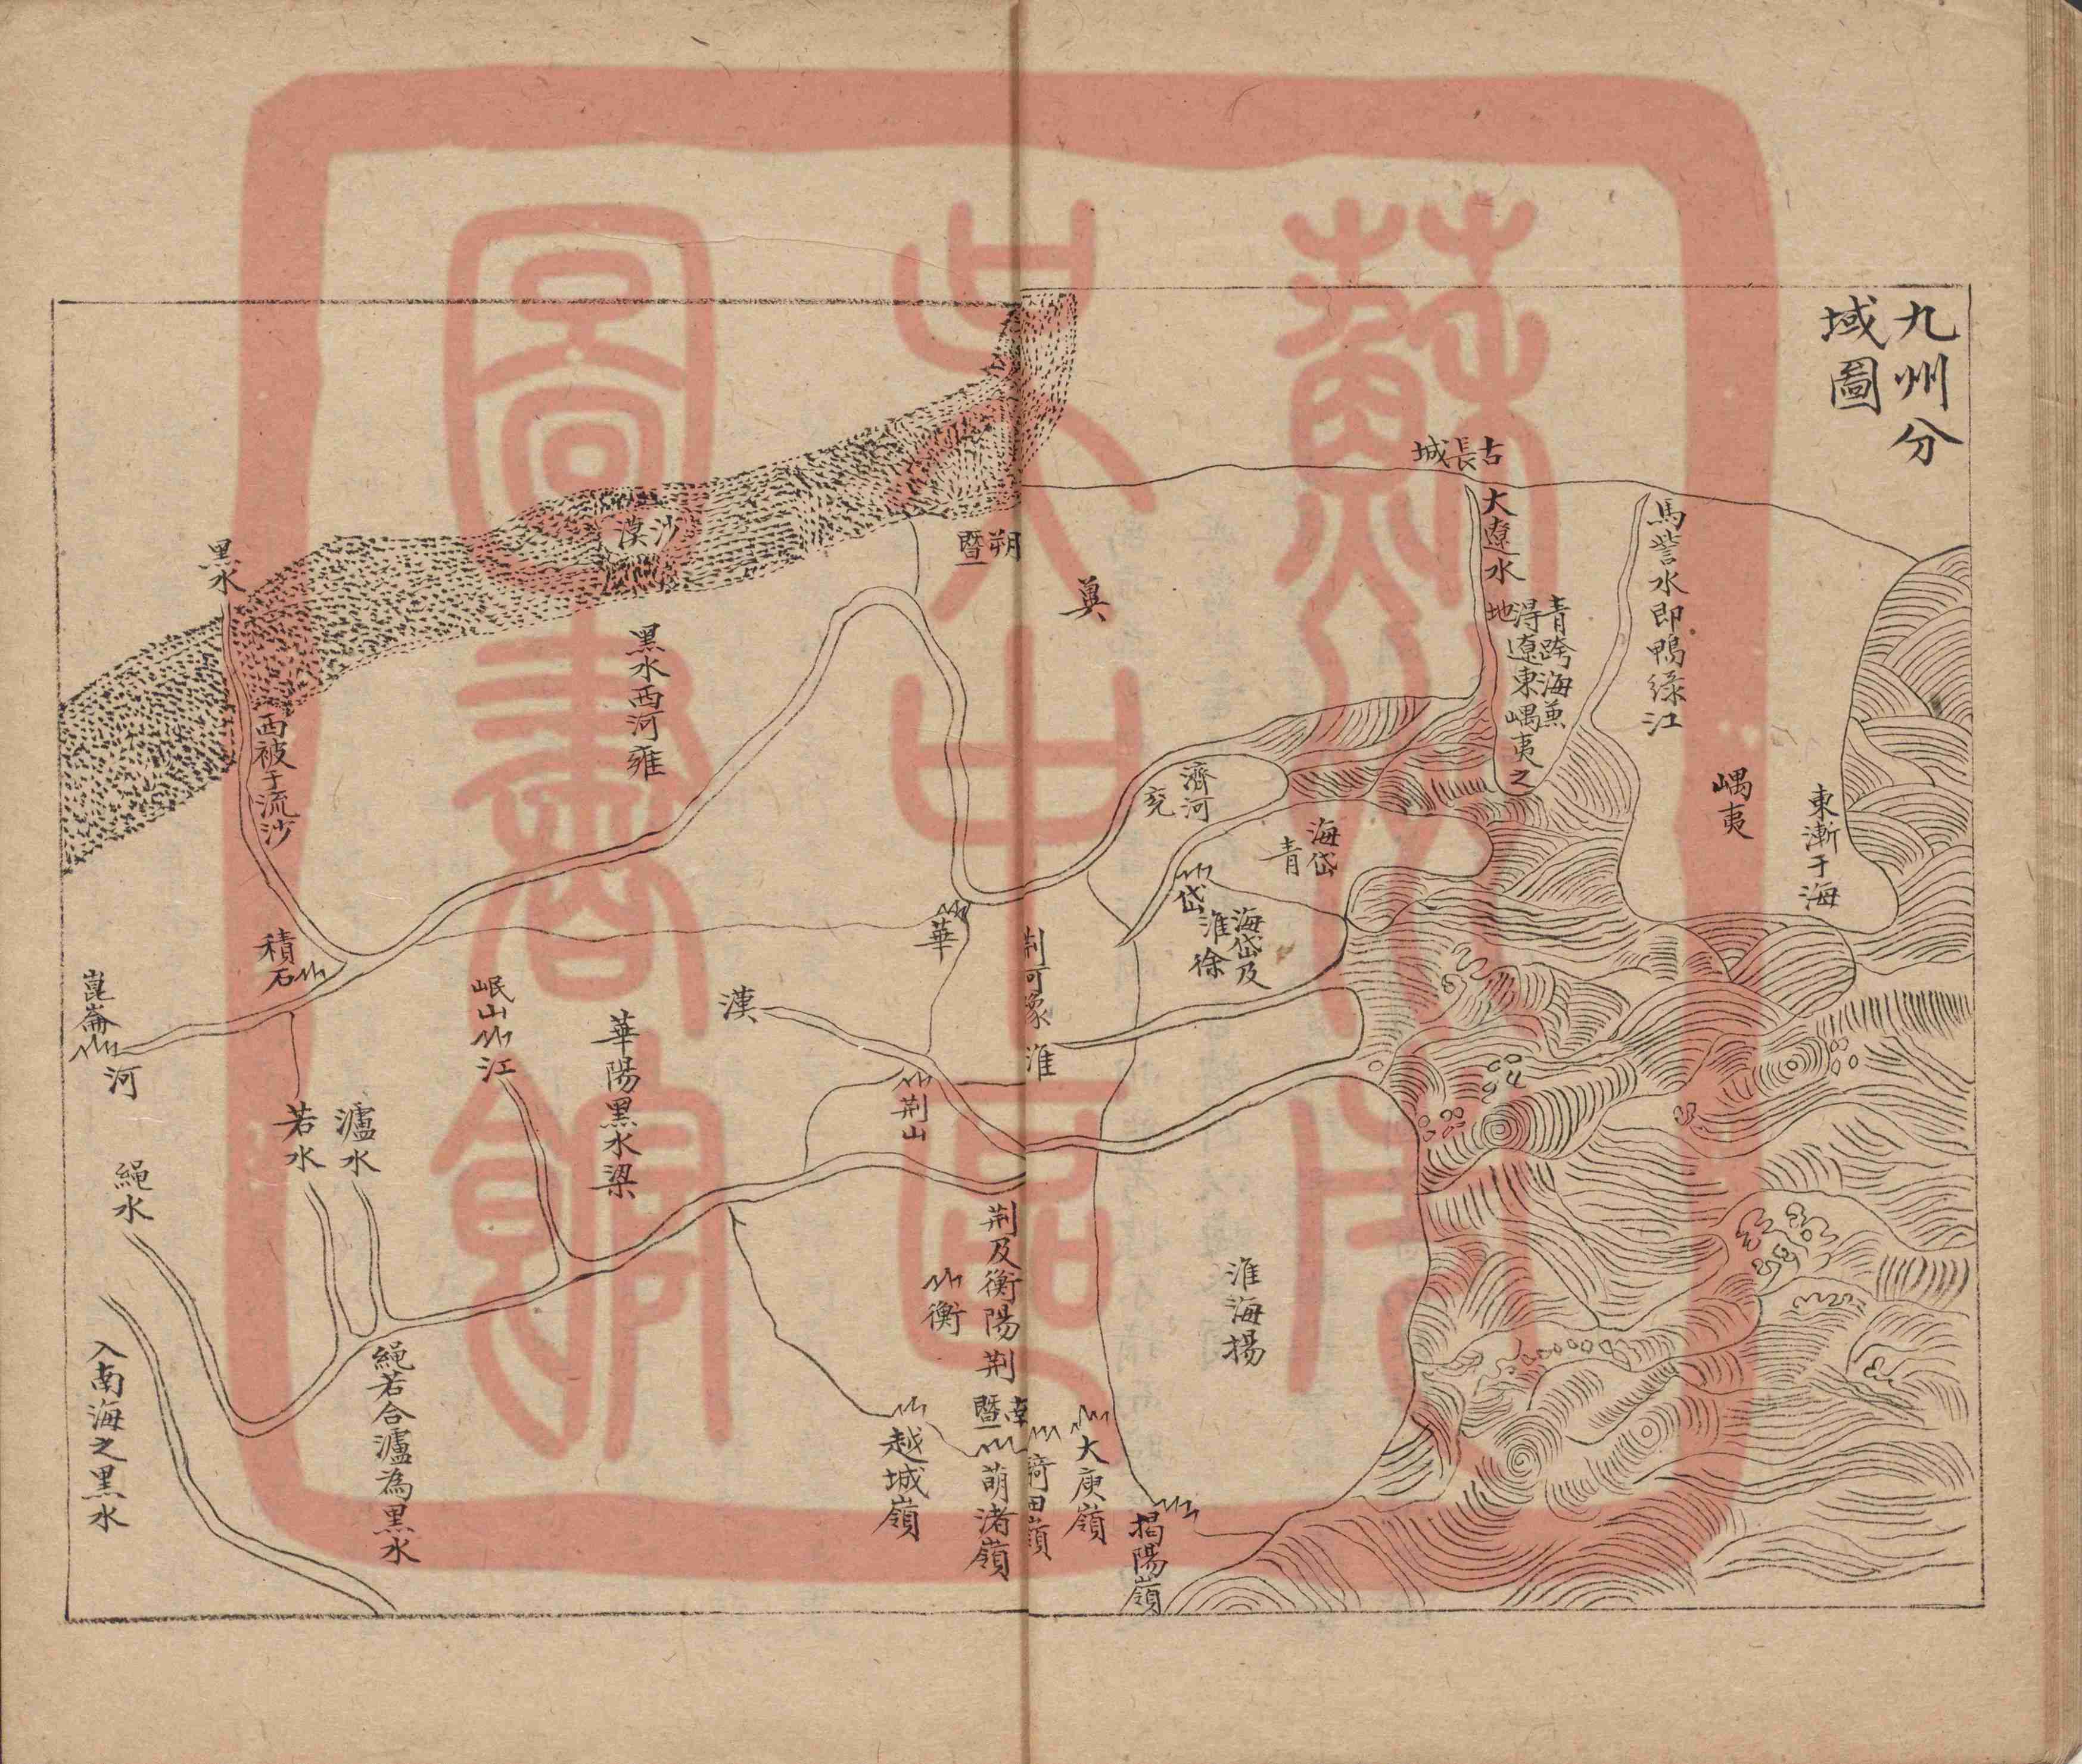 九州分
域圖
古長城
馬訾水即鴨綠江
大遼水
青跨海兼
得遼東嵎夷之
地
嵎夷
東漸于海
冀
朔
暨
沙漠
黑水
西被于流沙
黑水西河雍
濟河
兗
海岱
青
岱
海岱及
淮徐
華
荆河豫
淮
漢
荆山
積石
崑崙
河
岷山
江
華陽黑水梁
瀘水
若水
繩水
繩若合瀘為黑水
入南海之黑水
荆及衡陽荆
衡
淮海揚
南
暨
越城嶺
萌渚嶺
騎田嶺
大庾嶺
揭陽嶺
蘇州市
文史區
圖書館